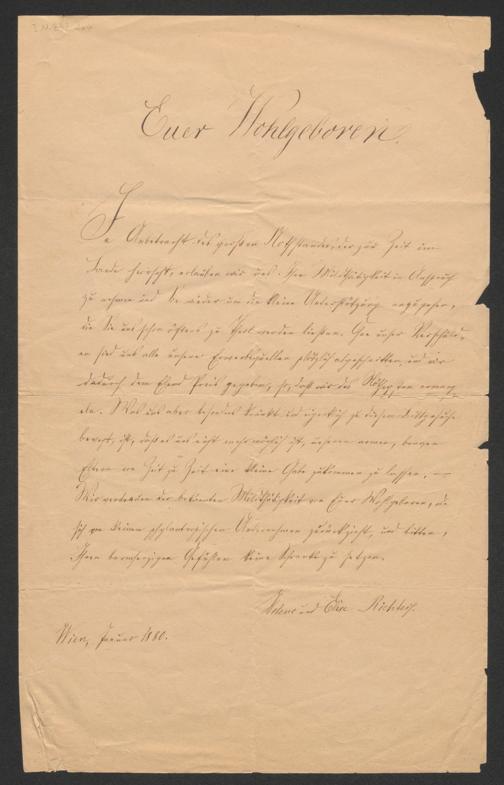 Euer Wohlgeboren.
In Anbetracht des großen Nothstandes, der zur Zeit im
Lande herrscht, erlauben wir uns Ihre Mildthätigkeit in Anspruch
zu nehmen und Sie wieder um die kleine Unterstützung anzugehen,
die Sie uns schon öfters zu Theil werden ließen. Ohne unser Verschuld-
en sind uns alle unsere Erwerbsquellen plötzlich abgeschnitten, und wir
dadurch dem Elend Preis gegeben, so, daß wir des Nöthigsten ermang-
eln. Was uns aber besonders kränkt und eigentlich zu diesem Bittgesuche
bewegt, ist, daß es uns nicht mehr möglich ist, unseren armen, braven
Eltern von Zeit zu Zeit eine kleine Gabe zukommen zu lassen. —
Wir vertrauen der bekannten Mildthätigkeit von Euer Wohlgeboren, die
sich von keinem philantropischen Unternehmen zurückzieht, und bitten,
Ihren barmherzigen Gefühlen keine Schranke zu setzen.
und Richter.
Wien, Januar 1880.